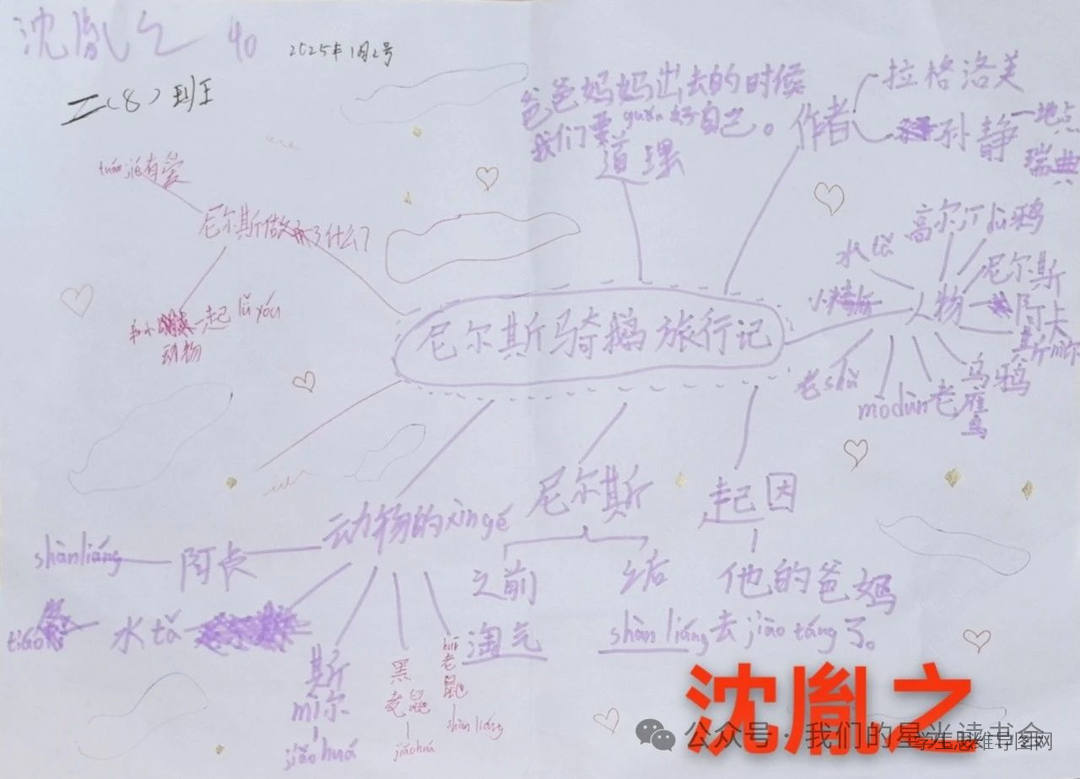 沈胤之 40
2025年1月2号
二(8)班
爸爸妈妈出去的时候
我们要guǎn好自己。
道理
作者
拉格洛芙
孙静
地点
瑞典
tuán jié有爱
尼尔斯做了什么?
和小
动物
一起lǚ yóu
尼尔斯骑鹅旅行记
人物
水tǎ
高尔
dù鸦
尼尔斯
阿卡
斯mǐ尔
乌鸦
老雁
mòdùn
老shǔ
动物的xìngé
阿卡
shànliáng
水tǎ
斯
mǐ尔
jiǎohuá
黑
老鼠
jiǎohuá
老
鼠
shàn liáng
尼尔斯
之前
之后
淘气
shàn liáng
起因
他的爸妈
去jiāo táng了。
沈胤之
公众号·我们的星光读书会
学生思维导图网